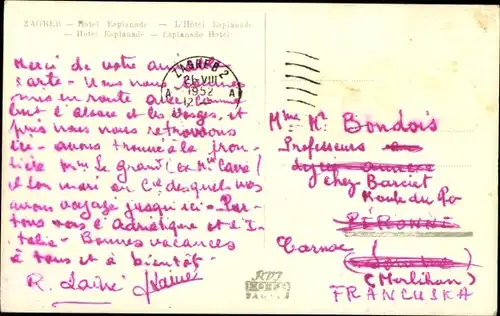 ZAGREB — Hotel Esplanade — L'Hôtel Esplanade
— Hotel Esplanade — Esplanade Hotel
Merci de votre
carte - Nous nous sommes
mis en route avec comme
but l'Alsace et les Vosges, et
puis nous nous retrouvons
ici - avons trouvé à la fron-
tière Mme Le Grand (ex Mlle Cave)
et son mari en Cie desquels nous
avons voyagé jusqu'ici - Par-
tons vers l'Adriatique et l'I-
talie - Bonnes vacances
à tous et à bientôt -
R. Lainé Lainé
ZAGREB 2
21-VIII
1952
12
A A
Mme Mr Bondois
Professeurs
chez Barciet
Moule du Po
PÉRONNE
Carnac
(Morbihan)
FRANCUSKA
ZAGREB